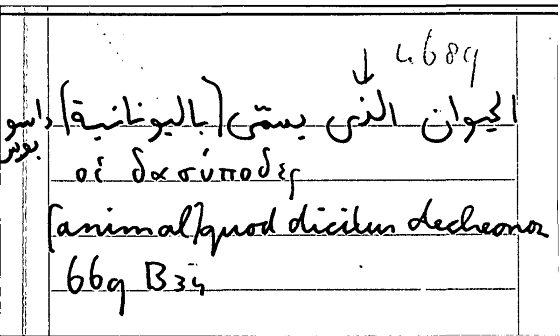 4689
الحيوان الذى يسمّى (باليونانية) داسو
بوس
οἱ δασύποδες
[animal] quod dicitur decheonoz
669 B34